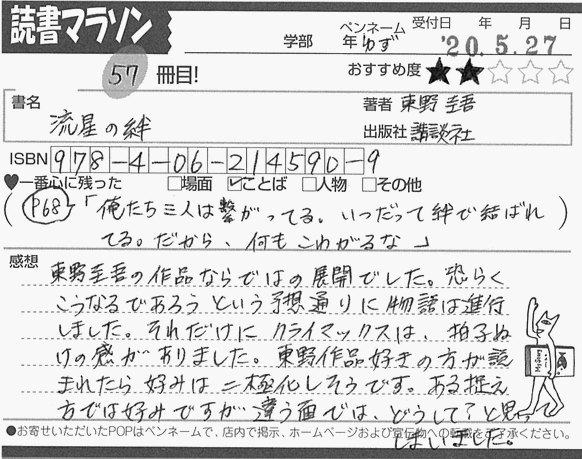 読書マラソン
学部 年 ペンネーム ゆず 受付日 年 月 日
'20.5.27
57 冊目! おすすめ度 ★★☆☆☆
書名 流星の絆
著者 東野圭吾
出版社 講談社
ISBN 978-4-06-214590-9
♥一番心に残った □場面 ☑ことば □人物 □その他
(P68 「俺たち三人は繋がってる。いつだって絆で結ばれ
てる。だから、何もこわがるな」)
感想
東野圭吾の作品ならではの展開でした。恐らく
こうなるであろうという予想通りに物語は進行
しました。それだけにクライマックスは、拍子ぬ
けの感がありました。東野作品好きの方が読
まれたら好みは二極化しそうです。ある捉え
方では好みですが違う面では、どうして?と思っ
てしまいました。
●お寄せいただいたPOPはペンネームで、店内で掲示、ホームページおよび宣伝物への転載をご了承ください。